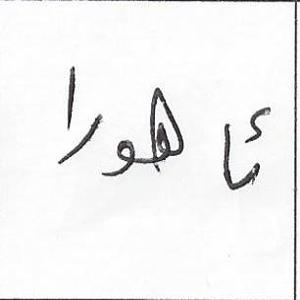 ئاهورا